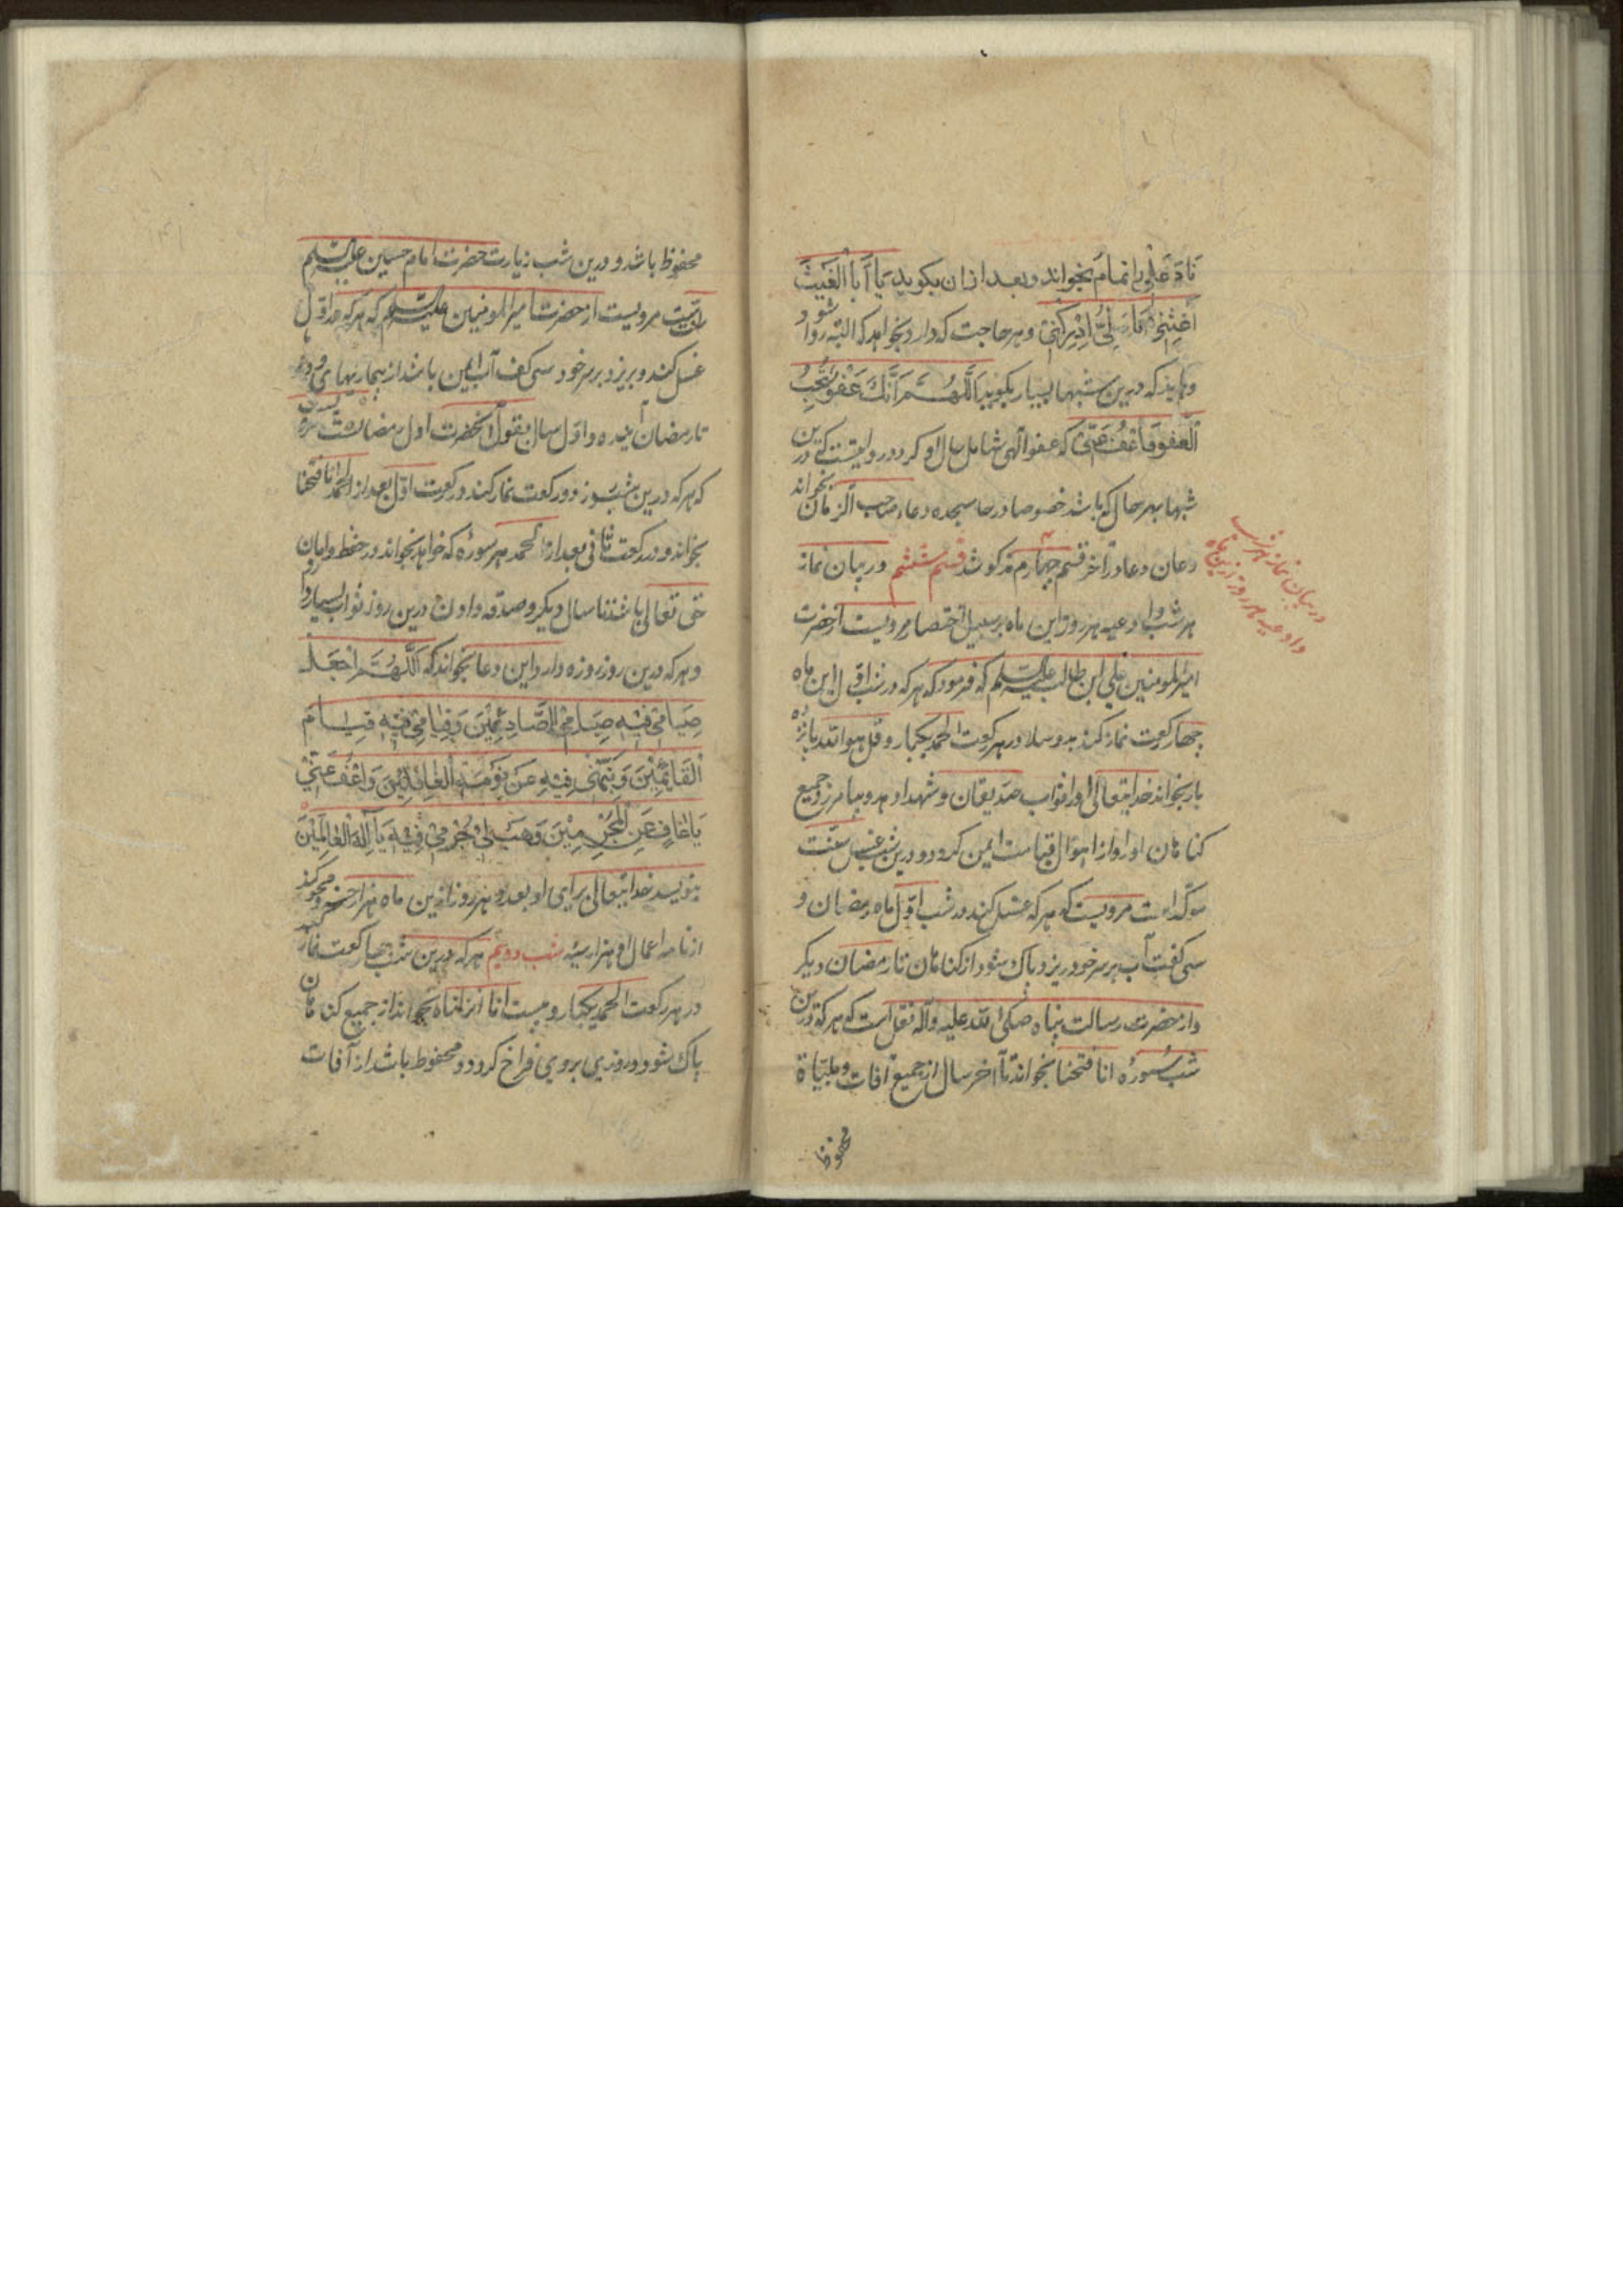 ناد علی را تمام بخواند و بعد ازان بگوید یَا أَبَا الْغَیْثَ
أَغِثْنِی یَا عَلِیُّ أَدْرِکْنِی و هر حاجت که دارد بخواهد که البته روا شود و
و باید که درین شبها بسیار بگوید اَللَّهُمَّ إِنَّکَ عَفُوٌّ تُحِبُّ
الْعَفْوَ فَاعْفُ عَنِّی که عفو الهی شامل حال او گردد و روایتست که درین
شبها بهر حال که باشد خصوصا در حال سجده دعاء صاحب الزمان بخواند
و آن دعا در آخر قسم چهارم مذکور شد قسم ششم در بیان نماز
هر شب و ادعیه هر روز این ماه بر سبیل اختصار مرویست از حضرت
امیر المومنین علی ابن طالب علیه السلم که فرمود که هر که در شب اول این ماه
چهار رکعت نماز کند بدو سلام در هر رکعت الحمد یکبار و قل هو الله پانزده
بار بخواند خدایتعالی او را ثواب صدیقان و شهدا و بدهد و بیامرزد جمیع
گناهان او را و از اهوال قیامت ایمن گردد و درین شب غسل سنت
موکد است مرویست که هر که غسل کند در شب اول ماه رمضان و
سی کف آب بر سر خود ریزد پاک شود از گناهان تا رمضان دیگر
و از حضرت رسالت پناه صلی الله علیه و آله نقل است که هر که درین
شب سوره انا فتحنا بخواند تا آخر سال از جمیع آفات و بلیات
محفوظ
در بیان نماز هر شب
و ادعیه هر روز ازین ماه
محفوظ باشد و درین شب زیارت حضرت امام حسین علیه السلم
سنت است مرویست از حضرت امیر المومنین علیه السلم که هر که در اول
غسل کند و بریزد بر سر خود سی کف آب ایمن باشد از بیماریهای
تا رمضان آینده و اول سال بقول آنحضرت اول رمضانست
که هر که درین شب و روز دو رکعت نماز کند در رکعت اول بعد از الحمد انا فتحنا
بخواند و در رکعت ثانی بعد از الحمد هر سوره که خواهد بخواند در حفظ و امان
حق تعالی باشد تا سال دیگر و صدقه دادن درین روز ثواب بسیار دارد
و هر که درین روز روزه دارد و این دعا بخواند که اَللَّهُمَّ اجْعَلْ
صِیَامِی فِیهِ صِیَامَ الصَّائِمِینَ وَ قِیَامِی فِیهِ قِیَامَ
الْقَائِمِینَ وَ نَبِّهْنِی فِیهِ عَنْ نَوْمَةِ الْغَافِلِینَ وَ اعْفُ عَنِّی
یَا عَافِیَ عَنِ الْمُجْرِمِینَ وَ هَبْ لِی جُرْمِی فِیهِ یَا إِلَهَ الْعَالَمِینَ
بنویسد خدایتعالی برای او بعدد هر روز ازین ماه هزار حسنه و محو کند
از نامه اعمال او هزار سیئه شب دویم هر که درین شب چهار رکعت نماز کند
در هر رکعت الحمد یکبار و بیست انا انزلناه بخواند از جمیع گناهان
پاک شود و روزی بروی فراخ گردد و محفوظ باشد از آفات